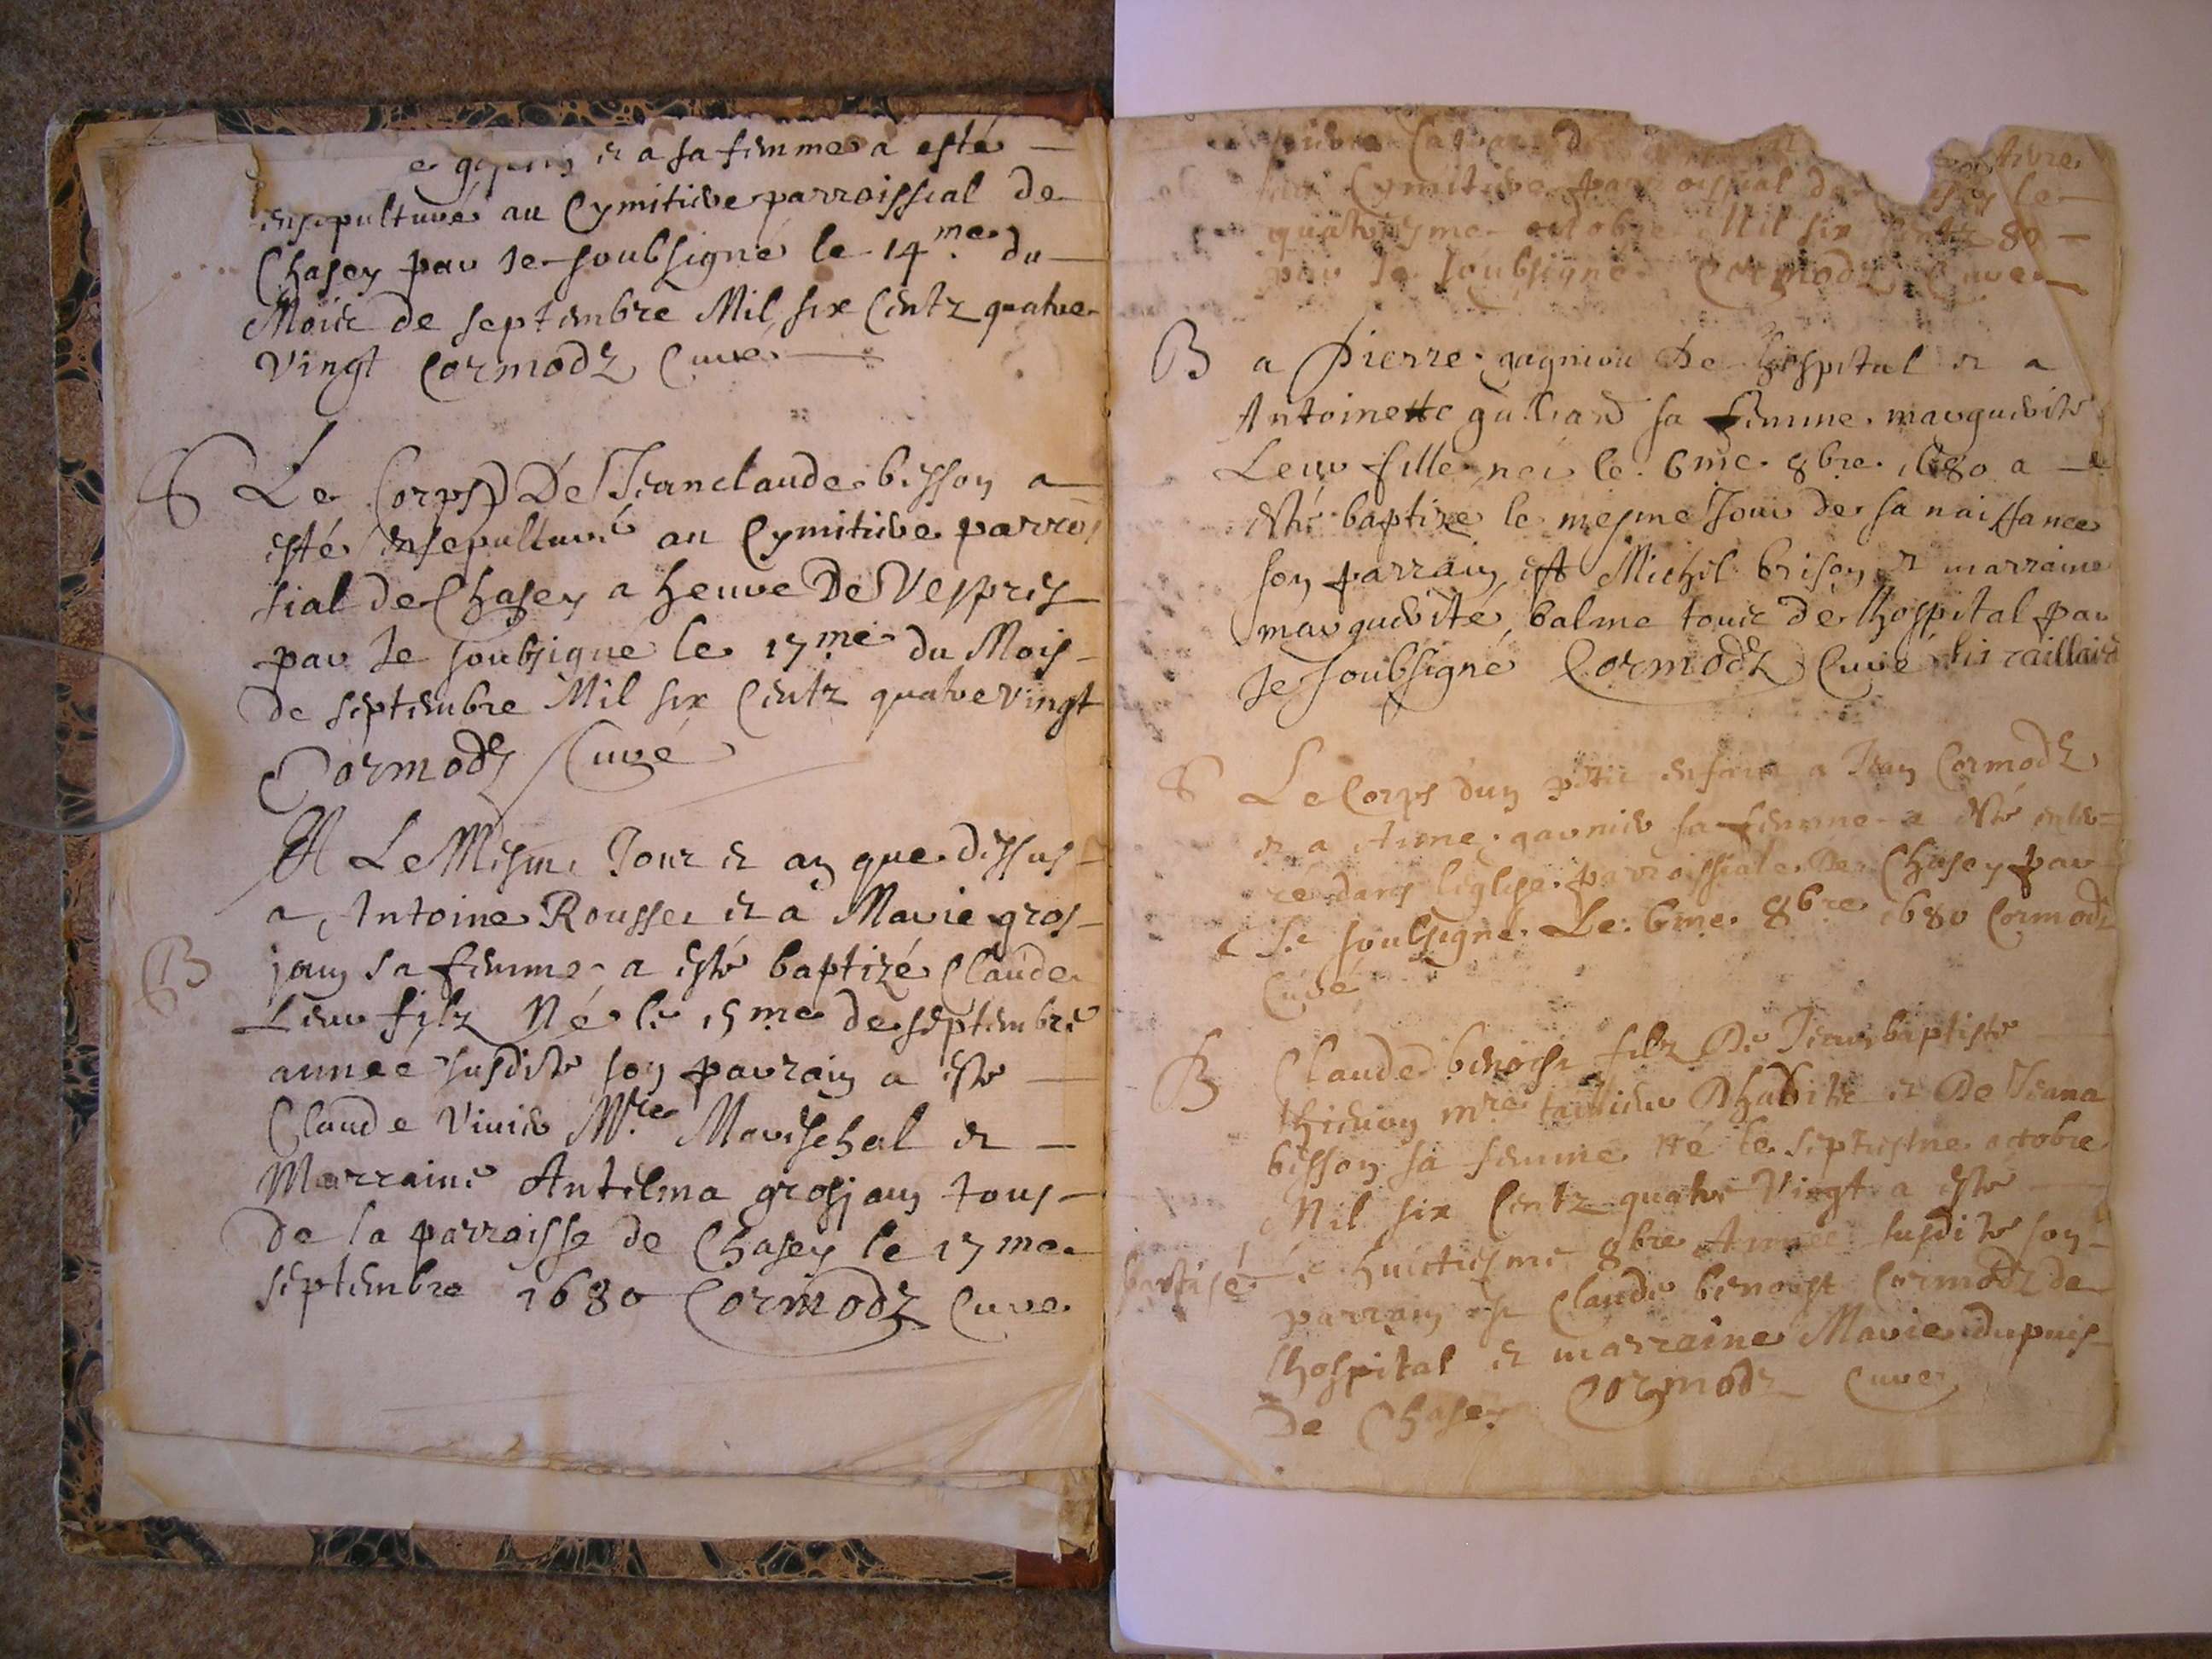 et a sa femme a esté
ensepulturé au Cymitiere parroissial de
Chasey par Je soubsigné le 14.me du
Moiec de septembre Mil six Centz quatre
Vingt Cormodz Curé
S Le Corps De Jeanclaude bisson a
esté ensepulturé au Cymitiere parrois
sial de Chasey a heure De Vespres
par Je soubsigné le 17.me du Mois
de septembre Mil six Centz quatrevingt
Cormodz Curé
A Le Mesme Jour et an que dessus
a Antoine Rousset et a Marie gros
B jean sa femme a esté baptizé Claude
Leur filz Né le 15me de septembre
année susdite son parrain a esté
Claude Vivier M.re Mareschal et
Marraine Antelma grosjean tous
de la parroisse de Chasey le 17me
septembre 1680 Cormodz Curé
Cymitiere parroissial de le
quatriesme octobre Mil six Centz 80
par Je soubsigné Cormodz Curé
B a Pierre gagnieu De lhospital et a
Antoinette gulliard sa femme marguerite
Leur fille née le 6me 8bre 1680 a
esté baptizé le mesme Jour de sa naissance
son parrain est Michel brison et marraine
marguerite balme touc de lhospital par
Je soubsigné Cormodz Curé
S Le Corps dun petit enfant a Jean Cormodz
et a Anne garnier sa femme a esté enter
ré dans leglise parroissiale De Chasey par
Je soubsigné Le 6me 8bre 1680 Cormodz
Curé
B Claude benoist filz De Jean baptiste
thievon mre et De Jeana
bisson sa femme Né le septiesme octobre
Mil six Centz quatre Vingt a esté
baptisé le huictiesme 8bre Année susdite son
parrain est Claude benoist Cormodz de
lhospital et marraine Marie dupuis
De Chasey Cormodz Curé